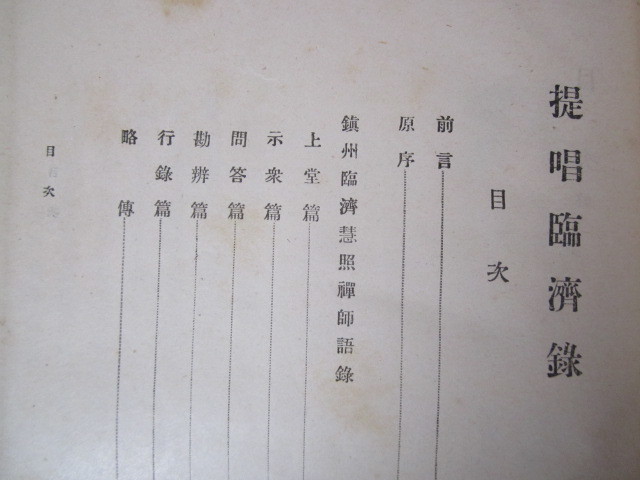 提唱臨濟錄
目次
前言
原序
鎭州臨濟慧照禪師語錄
上堂篇
示衆篇
問答篇
勘辨篇
行錄篇
略傳
目次